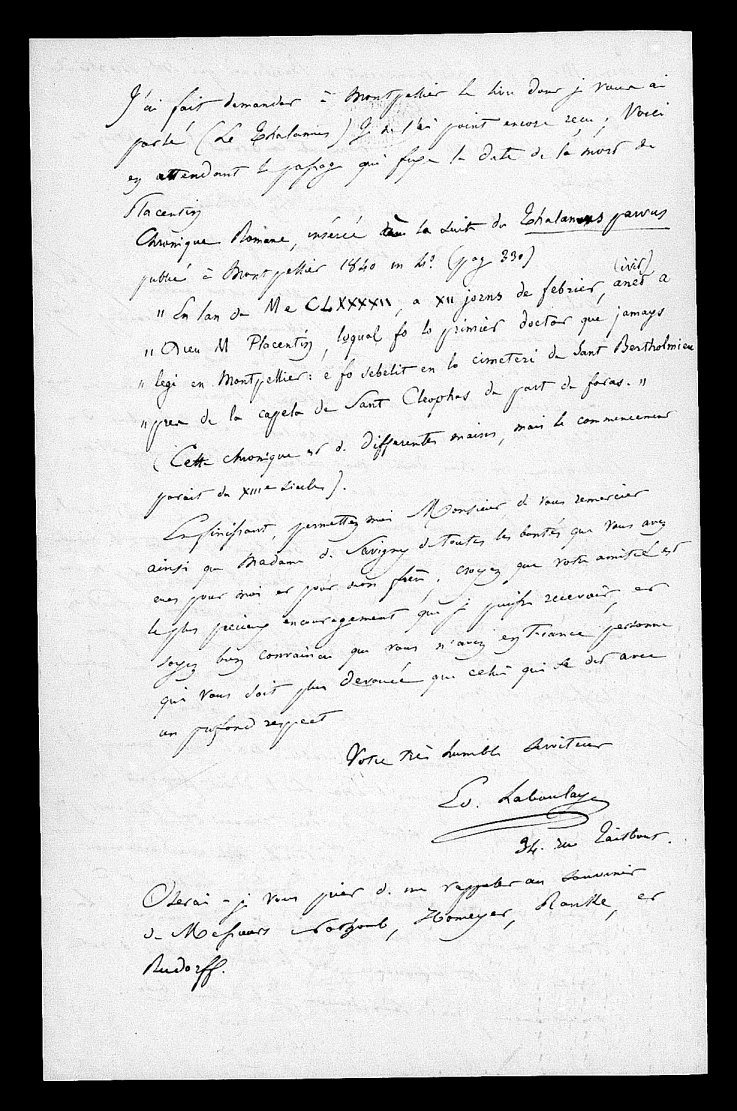 J'ai fait demander à Montpellier le livre dont je vous ai
parlé (Le Thalamus) Je ne l'ai point encore reçu; Voici
en attendant le passage qui fixe la date de la mort de
Placentin
Chronique Romane, insérée à la suite du Thalamus parvus
publié à Montpellier 1840 in 4° (pag 330)
" En lan de M e CLXXXXII, a XII jorns de febrier, anet a
" Dieu M Placentin, loqual fo lo primier doctor que jamays
" legi en Montpellier: e fo sebelit en lo cimeteri de Sant Bertholmieu
" pres de la capela de Sant Cleophas de part de foras. "
(Cette chronique est de differentes mains, mais le commencement
parait du XIIIe siecle).
En finissant, permettez moi Monsieur de vous remercier
ainsi que Madame de Savigny de toutes les bontés que vous avez
eues pour moi et pour mon frère, croyez que votre amitié est
le plus precieux encouragement que je puisse recevoir, et
soyez bien convaincu que vous n'avez en France personne
qui vous soit plus devouée que celui qui se dit avec
un profond respect
Votre très humble serviteur
Ed. Laboulaye
34. rue Taitbout.
Oserai-je vous prier de me rappeler au souvenir
de Messieurs Homeyer, Ranke, et
Rudorff.